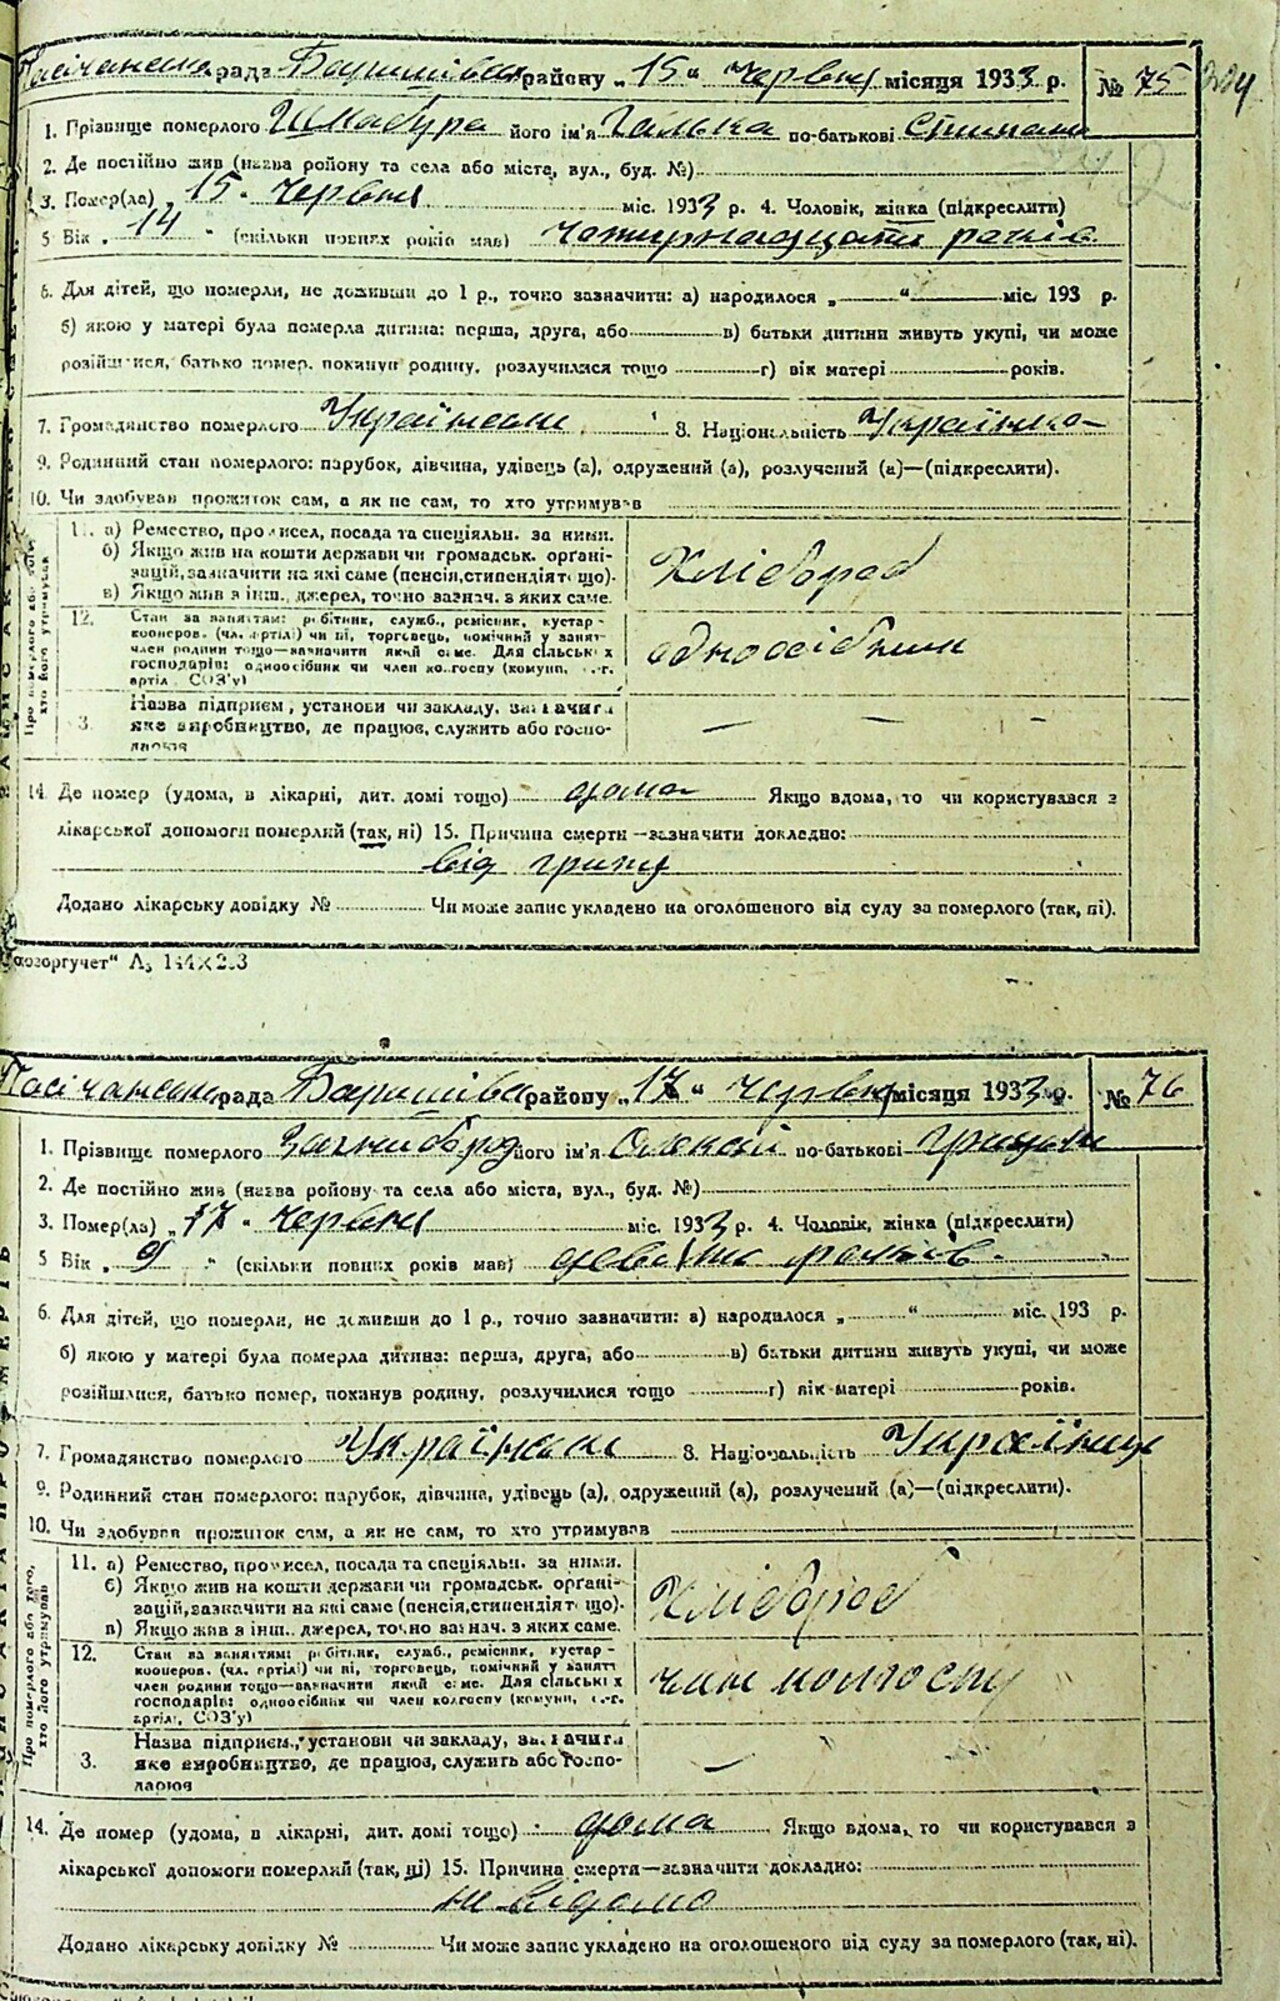 Пасічанська рада Баришівськ району „15“ червня місяця 1933 р. № 75
1. Прізвище померлого Шкабура його ім'я Галька по-батькові
2. Де постійно жив (назва ройону та села або міста, вул., буд. №)
3. Помер(ла) „15“ червня міс. 1933 р. 4. Чоловік, жінка (підкреслити)
5 Вік „14“ (скільки повних років мав) чотирнадцяти років
6. Для дітей, що померли, не доживши до 1 р., точно зазначити: а) народилося „ “ міс. 193 р.
б) якою у матері була померла дитина: перша, друга, або в) батьки дитини живуть укупі, чи може
розійшлися, батько помер, покинув родину, розлучилися тощо г) вік матері років.
7. Громадянство померлого Українське 8. Національність Українка
9. Родинний стан померлого: парубок, дівчина, удівець (а), одружений (а), розлучений (а)—(підкреслити).
10. Чи здобував прожиток сам, а як не сам, то хто утримував
11. а) Ремество, промисел, посада та спеціяльн. за ними.
б) Якщо жив на кошти держави чи громадськ. органі-
зацій, зазначити на які саме (пенсія, стипендія тощо).
в) Якщо жив з інш. джерел, точно зазнач. з яких саме.
Хлібороб
12. Стан за заняттям: робітник, служб., ремісник, кустар -
кооперов. (чл. артілі) чи ні, торговець, помічний у занят-
член родини тощо—зазначити який саме. Для сільських
господарів: одноосібник чи член колгоспу (комуни, с.-г.
артілі, СОЗ'у)
одноосібник
3. Назва підприєм., установи чи закладу, зазначити
яке виробництво, де працює, служить або госпо-
дарює
14. Де помер (удома, в лікарні, дит. домі тощо) дома Якщо вдома, то чи користувався з
лікарської допомоги померлий (так, ні) 15. Причина смерти—зазначити докладно:
від грипу
Додано лікарську довідку № Чи може запис укладено на оголошеного від суду за померлого (так, ні).
144×203
Пасічанська рада Баришівськ району „17“ червня місяця 1933 р. № 76
1. Прізвище померлого Загнибород його ім'я Олексій по-батькові
2. Де постійно жив (назва ройону та села або міста, вул., буд. №)
3. Помер(ла) „17“ червня міс. 1933 р. 4. Чоловік, жінка (підкреслити)
5 Вік „9“ (скільки повних років мав) девяти років
6. Для дітей, що померли, не доживши до 1 р., точно зазначити: а) народилося „ “ міс. 193 р.
б) якою у матері була померла дитина: перша, друга, або в) батьки дитини живуть укупі, чи може
розійшлися, батько помер, покинув родину, розлучилися тощо г) вік матері років.
7. Громадянство померлого Українське 8. Національність Українець
9. Родинний стан померлого: парубок, дівчина, удівець (а), одружений (а), розлучений (а)—(підкреслити).
10. Чи здобував прожиток сам, а як не сам, то хто утримував
Про померлого або того,
хто його утримував
11. а) Ремество, промисел, посада та спеціяльн. за ними.
б) Якщо жив на кошти держави чи громадськ. органі-
зацій, зазначити на які саме (пенсія, стипендія тощо).
в) Якщо жив з інш. джерел, точно зазнач. з яких саме.
Хлібороб
12. Стан за заняттям: робітник, служб., ремісник, кустар -
кооперов. (чл. артілі) чи ні, торговець, помічний у занятт
член родини тощо—зазначити який саме. Для сільських
господарів: одноосібник чи член колгоспу (комуни, с.-г.
артілі, СОЗ'у)
член колгоспу
3. Назва підприєм., установи чи закладу, зазначити
яке виробництво, де працює, служить або госпо-
дарює
14. Де помер (удома, в лікарні, дит. домі тощо) дома Якщо вдома, то чи користувався з
лікарської допомоги померлий (так, ні) 15. Причина смерти—зазначити докладно:
не відомо
Додано лікарську довідку № Чи може запис укладено на оголошеного від суду за померлого (так, ні).